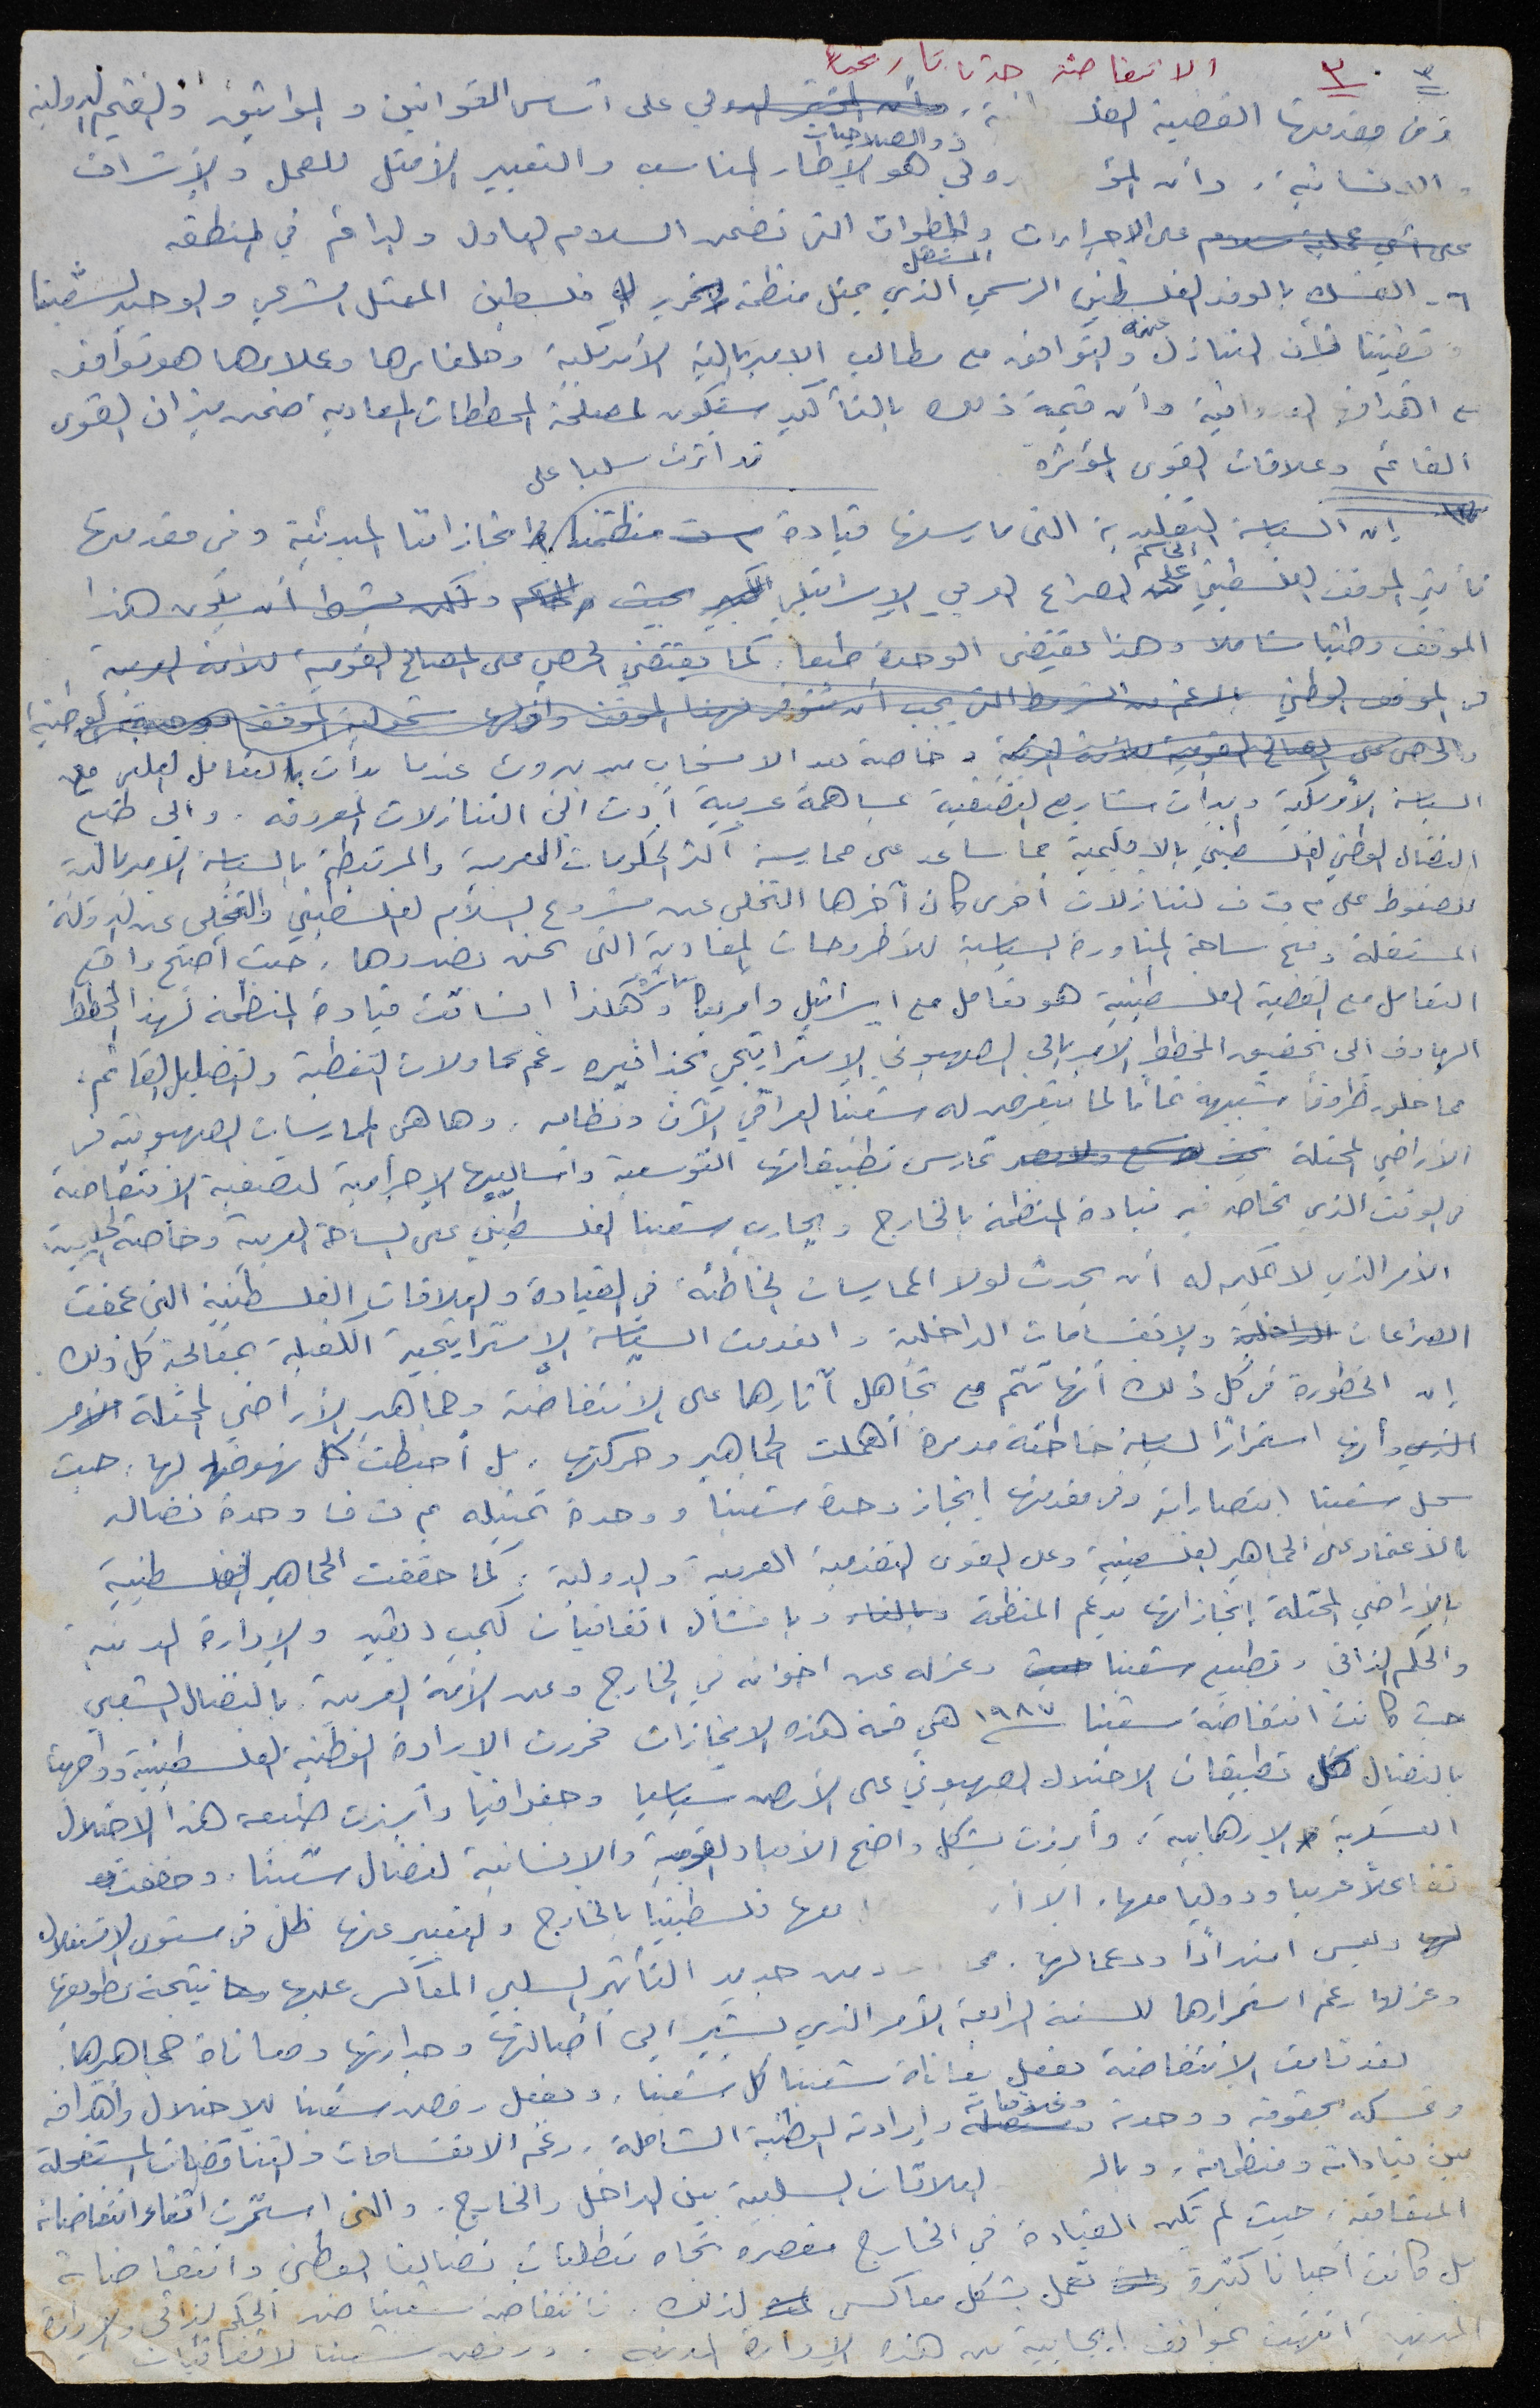 ٣ ٣ الانتفاضة حدثا تاريخيا
وفي مقدمتها القضية على أساس القوانين والمواثيق والقيم الدولية
والانسانية، وأن ذو الصلاحيات هو الإطار المناسب والتعبير الأمثل للعمل والإشراف
على أي عملية سلام على الإجراءات والخطوات التي تضمن السلام العادل والدائم في المنطقة
٦- التمسك بالوفد الفلسطيني الرسمي المستقل الذي يمثل منظمة التحرير فلسطين الممثل الشرعي والوحيد لشعبنا
وقضيتنا فأن التنازل عنه والتوافق مع مطالب الامبريالية الأمريكية وحلفائها وعملائها هو توافق
مع أهدافهم العدوانية وأن قيمة ذلك بالتأكيد ستكون لمصلحة المخططات المعادية ضمن ميزان القوى
القائم وعلاقات القوى المؤثرة
قد أثرت سلبا على
إن السياسة التقليدية التي مارستها قيادة منظمتنا إنجازاتنا المبدئية وفي مقدمتها
تأثير الموقف الفلسطيني على الصراع العربي الإسرائيلي بحيث ولكن بشرط أن يكون هذا
الموقف وطنيا شاملا وهذا يقتضي الوحدة طبعا، كما يقتضي الحرص على المصالح القومية للأمة العربية
في الموقف الوطني بالرغم من الشروط التي يجب أن تتوفر لهذا الموقف
والحرص على المصالح القومية للأمة العربية، وخاصة بعد الانسحاب من بيروت عندما بدأت بالتعامل العلني مع
السياسة الأمريكية وبدأت مشاريع التصفية بمساهمة عربية أدت الى التنازلات المعروفة، والى
النضال الوطني الفلسطيني بالاقليمية مما ساعد على ممارسة أكثر الحكومات العربية والمرتبطة بالسياسة الامبريالية
للضغوط على م ت ف لتنازلات أخرى كان آخرها التخلي عن مشروع السلام الفلسطيني والتخلي عن الدولة
المستقلة وفتح ساحة المناورة السياسية للأطروحات المعادية التي نحن بصددها، حيث أصبح واقع
التعامل مع القضية الفلسطينية هو تعامل مع اسرائيل وأمريكا مباشرة وهكذا انساقت قيادة المنظمة لهذا المخطط
الهادف الى تحقيق المخطط الامبريالي الصهيوني الإستراتيجي بحذافيره رغم محاولات التغطية والتضليل القائم،
مما خلق ظروفا شبيهة تماما لما يتعرض له شعبنا العراقي الآن ونظامه، وها هي الممارسات الصهيونية في
الأراضي المحتلة تمارس تطبيقاتها التوسعية وأساليبها الإجرامية لتصفية الانتفاضة
في الوقت الذي تحاصر فيه قيادة المنظمة بالخارج ويحارب شعبنا الفلسطيني على الساحة العربية وخاصة
الأمر الذي لا يمكن له أن يحدث لولا الممارسات الخاطئة في القيادة والعلاقات الفلسطينية التي عمقت
الصراعات الداخلية والإنقسامات الداخلية وانعدمت السياسة الإستراتيجية الكفيلة بمعالجة كل ذلك.
إن الخطورة في كل ذلك أنها تتم مع تجاهل آثارها على الانتفاضة وجماهير الأراضي المحتلة الأمر
وأنها استمرارًا لسياسة خاطئة مدمرة أهملت الجماهير وحركتها، بل أحبطت كل نهوض لها، حيث
سجل شعبنا انتصاراته وفي مقدمتها إنجاز وحدة شعبنا ووحدة تمثيله م ت ف ووحدة نضاله
بالاعتماد على الجماهير الفلسطينية وعلى القوى التقدمية العربية والدولية، كما حققت الجماهير الفلسطينية
بالأراضي المحتلة إنجازاتها بدعم المنظمة وبإفشال اتفاقيات كامب ديفيد والإدارة المدنية
والحكم الذاتي وتطبيع شعبنا وعزله عن اخوانه في الخارج وعن الأمة العربية، بالنضال الشعبي
حيث كانت انتفاضة شعبنا ١٩٨٧ هي قمة هذه الإنجازات فحررت الإرادة الوطنية الفلسطينية وواجهت
بالنضال كل تطبيقات الاحتلال الصهيوني على الأرض سياسيا وجغرافيا وأبرزت طبيعة هذا الاحتلال
العسكرية الإرهابية، وأبرزت بشكل واضح الأبعاد القومية والانسانية لنضال شعبنا، وحققت
تفاعلاً عربيا ودوليا معها، الا معها فلسطينيا بالخارج والتعبير عنها ظل في مستوى الاستغلال
لها وليس امتدادًا ودعما لها، من جديد التأثير السلبي المعاكس عليها نتيجة تطويقها
وعزلها رغم استمرارها للسنة الرابعة الأمر الذي يشير الى أصالتها وجدارتها ومعاناة جماهيرها.
لقد قامت الانتفاضة بفعل معاناة شعبنا كل شعبنا، وبفعل رفض شعبنا للاحتلال وأهدافه
وتمسكه بحقوقه ووحدته وإرادته الوطنية الشاملة، رغم الانقسامات والتناقضات المستفحلة
بين قياداته ومنظماته، العلاقات السلبية بين الداخل والخارج، والتي استمرت أثناء انتفاضاته
المتعاقبة، حيث لم تكن القيادة في الخارج مقصرة تجاه متطلبات نضالنا الوطني وانتفاضاته
بل كانت أحيانا كثيرة تعمل بشكل معاكس لذلك، فانتفاضة شعبنا ضد الحكم الذاتي والإدارة
المدنية انتهت بمواقف إيجابية من هذه الإدارة المدنية، ورفض شعبنا لاتفاقيات